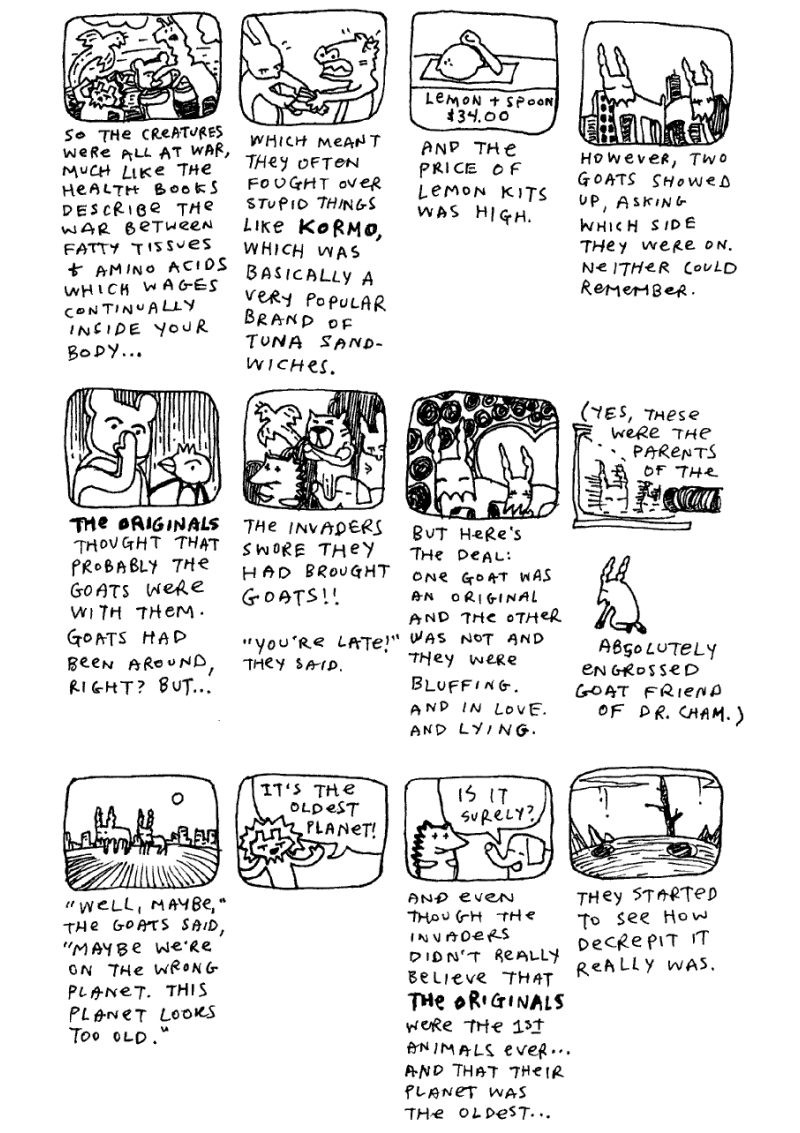 SO THE CREATURES
WERE ALL AT WAR,
MUCH LIKE THE
HEALTH BOOKS
DESCRIBE THE
WAR BETWEEN
FATTY TISSUES
+ AMINO ACIDS
WHICH WAGES
CONTINUALLY
INSIDE YOUR
BODY...
WHICH MEANT
THEY OFTEN
FOUGHT OVER
STUPID THINGS
LIKE KORMO,
WHICH WAS
BASICALLY A
VERY POPULAR
BRAND OF
TUNA SAND-
WICHES.
LEMON + SPOON
$34.00
AND THE
PRICE OF
LEMON KITS
WAS HIGH.
HOWEVER, TWO
GOATS SHOWED
UP, ASKING
WHICH SIDE
THEY WERE ON.
NEITHER COULD
REMEMBER.
THE ORIGINALS
THOUGHT THAT
PROBABLY THE
GOATS WERE
WITH THEM.
GOATS HAD
BEEN AROUND,
RIGHT? BUT...
THE INVADERS
SWORE THEY
HAD BROUGHT
GOATS!!
"YOU'RE LATE!"
THEY SAID.
BUT HERE'S
THE DEAL:
ONE GOAT WAS
AN ORIGINAL
AND THE OTHER
WAS NOT AND
THEY WERE
BLUFFING.
AND IN LOVE.
AND LYING.
(YES, THESE
WERE THE
PARENTS
OF THE
ABSOLUTELY
ENGROSSED
GOAT FRIEND
OF DR. CHAM.)
"WELL, MAYBE,"
THE GOATS SAID,
"MAYBE WE'RE
ON THE WRONG
PLANET. THIS
PLANET LOOKS
TOO OLD."
IT'S THE
OLDEST
PLANET!
IS IT
SURELY?
AND EVEN
THOUGH THE
INVADERS
DIDN'T REALLY
BELIEVE THAT
THE ORIGINALS
WERE THE 1ST
ANIMALS EVER...
AND THAT THEIR
PLANET WAS
THE OLDEST...
THEY STARTED
TO SEE HOW
DECREPIT IT
REALLY WAS.